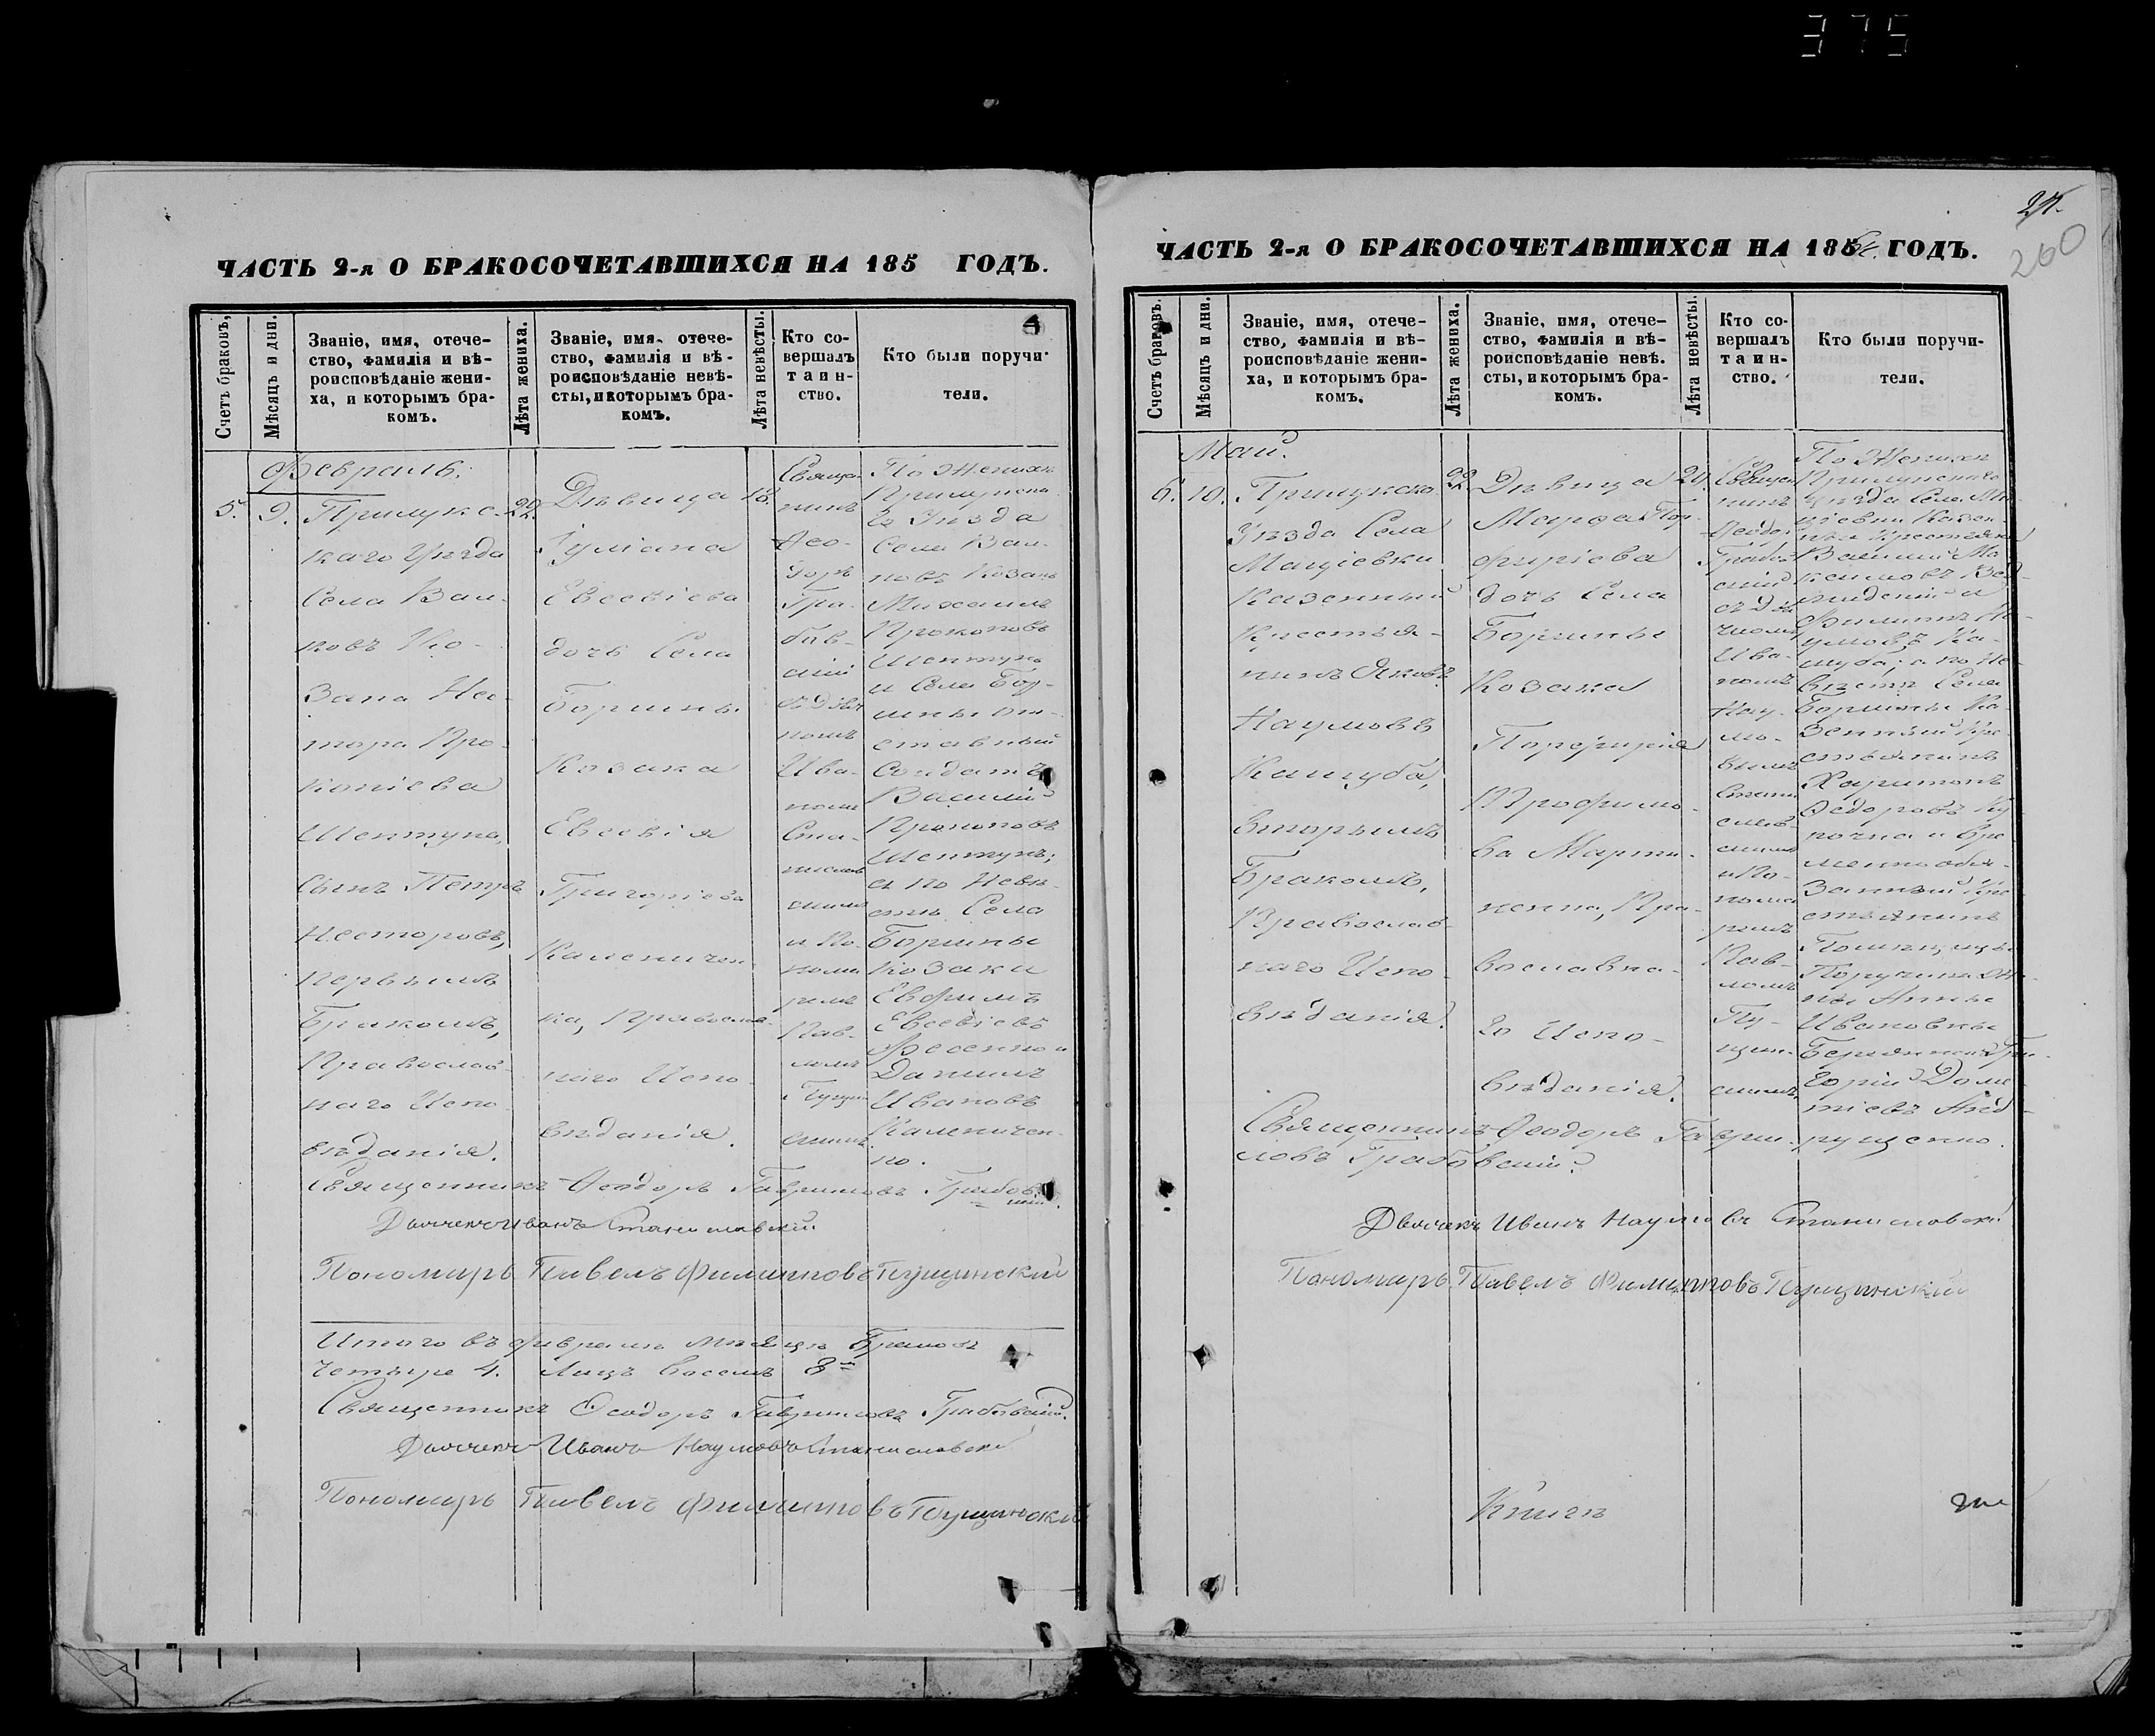 375
ЧАСТЬ 2-я О БРАКОСОЧЕТАВШИХСЯ НА 185 ГОДЪ.
Счетъ браковъ,
Мѣсяцъ и дни.
Званіе, имя, отече-
ство, фамилія и вѣ-
роисповѣданіе жени-
ха, и которымъ бра-
комъ.
Лѣта жениха.
Званіе, имя, отече-
ство, фамилія и вѣ-
роисповѣданіе невѣ-
сты, и которымъ бра-
комъ.
Лѣта невѣсты.
Кто со-
вершалъ
таин-
ство.
Кто были поручи-
тели.
Февраль.
5.
9.
Прилукс-
каго Уѣзда
Села Вал-
ковъ Ко-
зака Нес-
тора Про-
копіева
Шептуна,
Сынъ Петръ
Несторовъ,
первымъ
Бракомъ,
Православ-
наго Испо-
вѣданія.
22.
Дѣвица
Іуліана
Евсевіева
дочь Села
Боршны
Козака
Евсевія
Григоріева
Каленичен-
ка, Православ-
наго Испо-
вѣданія.
18.
Священ-
никъ
Ѳео-
доръ
Гра-
бов-
скій
съ Дьяч-
комъ
Ива-
номъ
Ста-
нислав-
скимъ
и По-
нома-
ремъ
Пав-
ломъ
Пущин-
скимъ.
По Женихѣ
Прилукска-
го Уѣзда
Села Вал-
ковъ Козакъ
Михаилъ
Прокоповъ
Шептунъ
и Села Бор-
шны От-
ставный
Солдатъ
Василій
Прокоповъ
Шептунъ;
а по Невѣ-
стѣ Села
Боршны
Козаки
Евфимъ
Евсевіевъ
Фесенко и
Даниилъ
Ивановъ
Каленичен-
ко.
Священникъ Ѳеодоръ Гавриловъ Грабов-
скій.
Дьячекъ Иванъ Станиславскій.
Пономарь Павелъ Филиповъ Пущинский
Итого въ февралѣ мѣсяцѣ Браковъ
Четыре 4. Лицъ восемь 8
Священникъ Ѳеодоръ Гавриловъ Грабовскій.
Дьячекъ Иванъ Наумовъ Станиславскі
Пономарь Павелъ Филиповъ Пущинский
260
ЧАСТЬ 2-я О БРАКОСОЧЕТАВШИХСЯ НА 18 ГОДЪ.
Счетъ браковъ.
Мѣсяцъ и дни.
Званіе, имя, отече-
ство, фамилія и вѣ-
роисповѣданіе жени-
ха, и которымъ бра-
комъ.
Лѣта жениха.
Званіе, имя, отече-
ство, фамилія и вѣ-
роисповѣданіе невѣ.
сты, и которымъ бра-
комъ.
Лѣта невѣсты.
Кто со-
вершалъ
таин-
ство.
Кто были поручи-
тели.
Май.
6.
10.
Прилукска
Уѣзда Села
Маціевки
Казенный
Крестья-
нинъ Яковъ
Наумовъ
Кашуба,
вторымъ
Бракомъ,
Православ-
наго Испо-
вѣданія.
Дѣвица
Марѳа Пор-
фиріева
дочь Села
Боршны
Козака
Порфирія
Трофимо-
ва Марти-
ненка, Пра-
вославна-
го Испо-
вѣданія.
20.
Священ-
никъ
Ѳеодоръ
Грабов-
скій
съ Дья-
чкомъ
Ива-
номъ
Нау-
мо-
вымъ
Стани-
слав-
скимъ
и По-
нома-
ремъ
Пав-
ломъ
Пу-
щин-
скимъ.
По Женихѣ
Прилукскаго
Уѣзда Села Ма-
ціевки Казен-
ные Крестьяне
Василій Ма-
ксимовъ
и
Филиппъ На-
умовъ Ка-
шуба; а по Не-
вѣстѣ Села
Боршны Ка-
зенный Кре-
стьянинъ
Харитонъ
Ѳедоровъ
и Вре-
менно обя-
занный Кре-
стьянинъ
Помѣщицы
Анны
Ивановны
Гри-
горій Доме-
тіевъ Ѳед-
рущенко.
Священникъ Ѳеодоръ Гаври-
ловъ Грабовскій.
Дьячекъ Иванъ Наумовъ Станиславскі
Пономарь Павелъ Филиповъ Пущинский